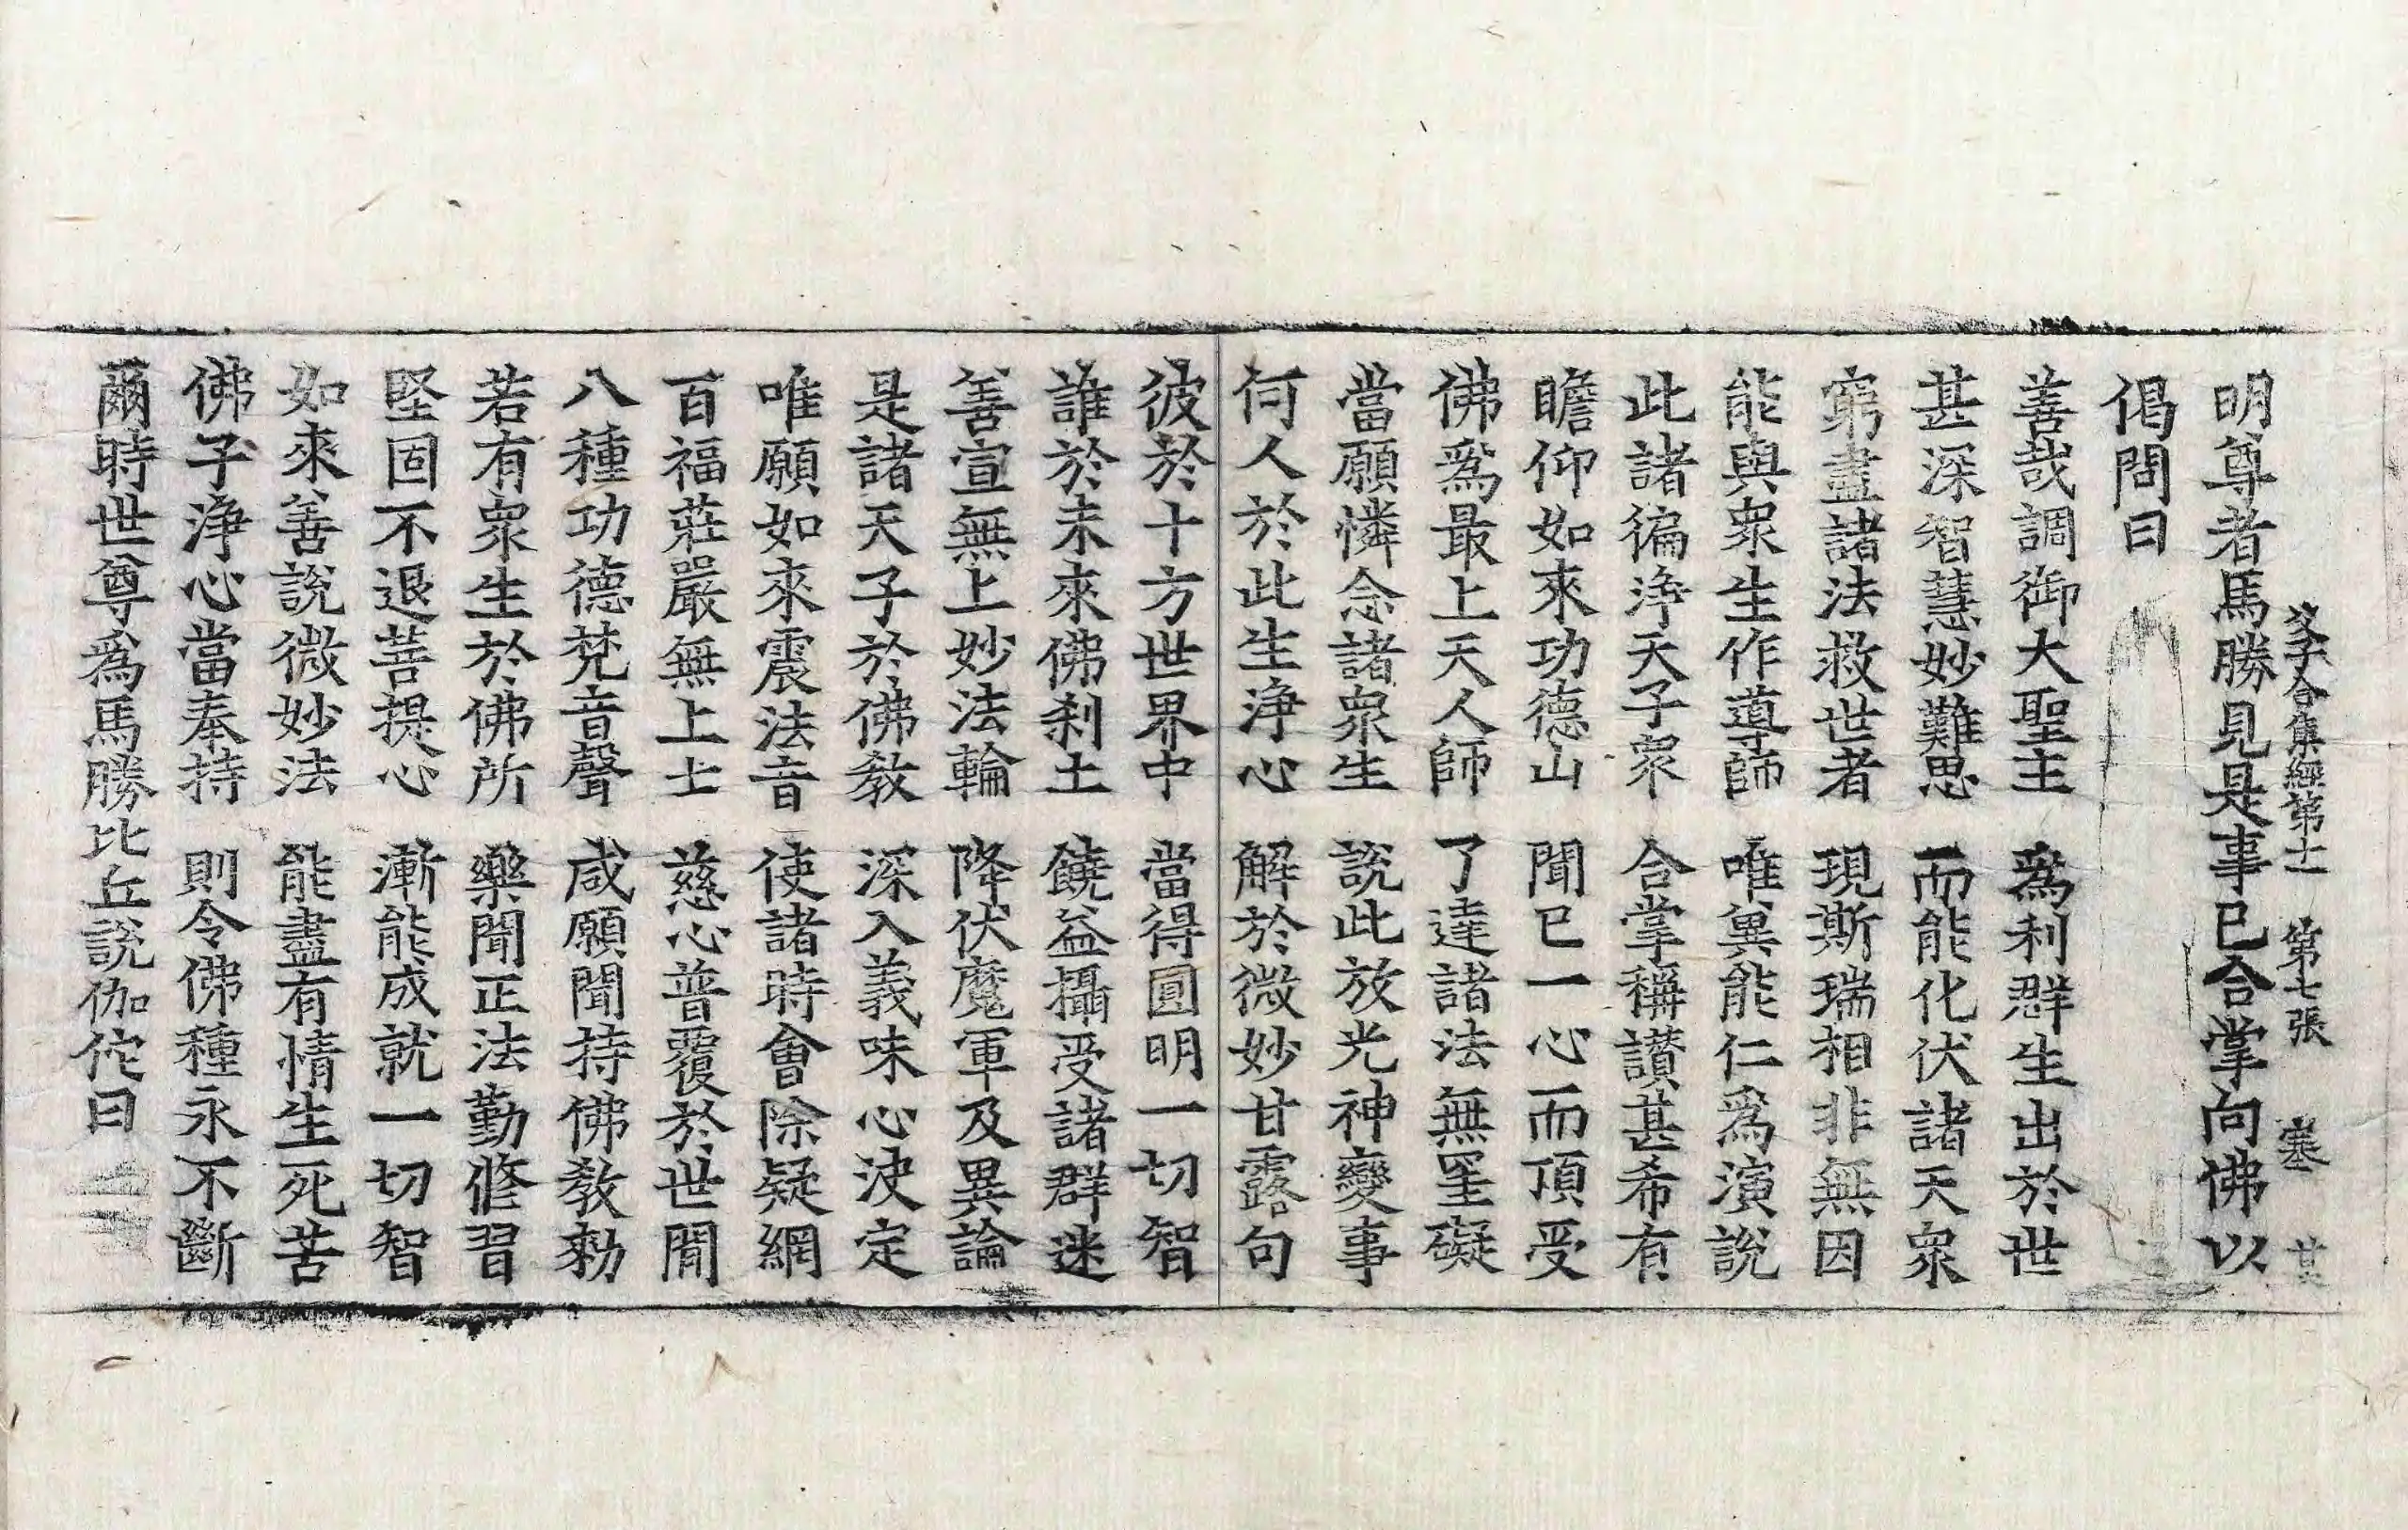 明尊者馬勝見是事已合掌向佛以
父子合集經第十一 第七張 塞
偈問曰
善哉調御大聖主 為利群生出於世
甚深智慧妙難思 而能化伏諸天衆
窮盡諸法救世者 現斯瑞相非無因
能與衆生作導師 唯兾能仁爲演說
此諸徧淨天子衆 合掌稱讃甚希有
瞻仰如來功德山 聞已一心而頂受
佛爲最上天人師 了達諸法無罣礙
當願憐念諸衆生 說此放光神變事
何人於此生淨心 解於微妙甘露句
彼於十方世界中 當得圓明一切智
誰於未來佛刹土 饒益攝受諸群迷
善宣無上妙法輪 降伏魔軍及異論
是諸天子於佛教 深入義味心決定
唯願如來震法音 使諸時會除疑網
百福莊嚴無上士 慈心普覆於世間
八種功德梵音聲 咸願聞持佛教勑
若有衆生於佛所 樂聞正法勤修習
堅固不退菩提心 漸能成就一切智
如來善說微妙法 能盡有情生死苦
佛子淨心當奉持 則令佛種永不斷
爾時世尊爲馬勝比丘說伽佗曰